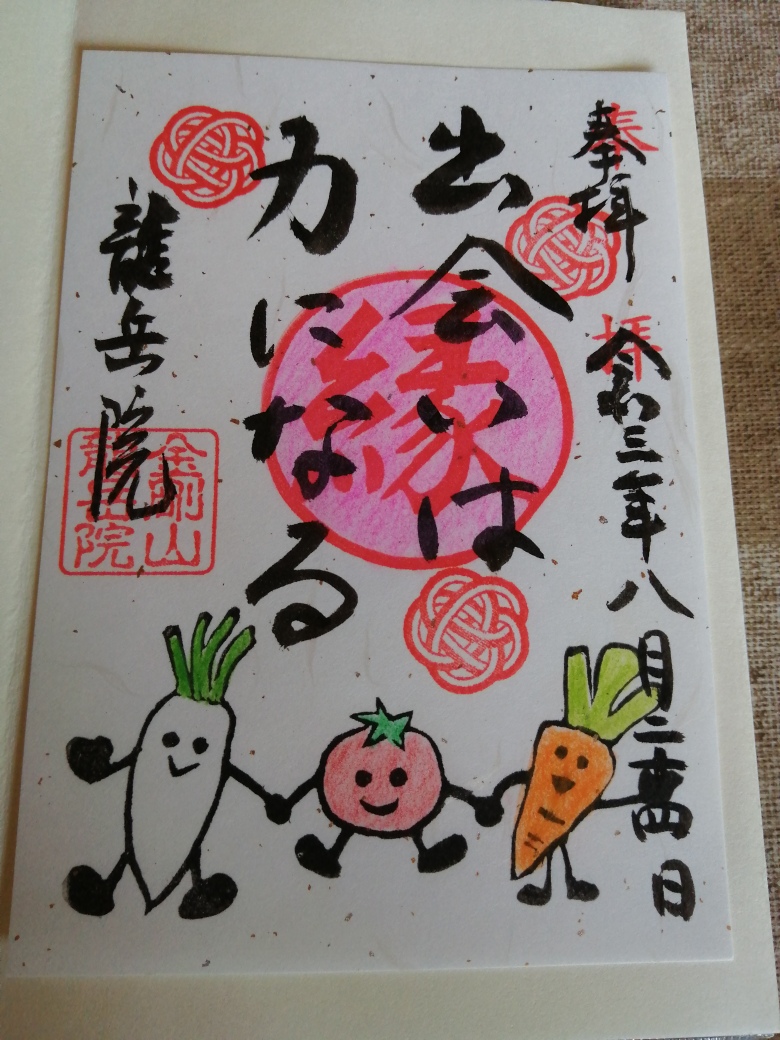 奉拝
奉拝
令和三年八月二十四日
出会いは
力になる
縁
龍岳院
金剛山
龍岳院